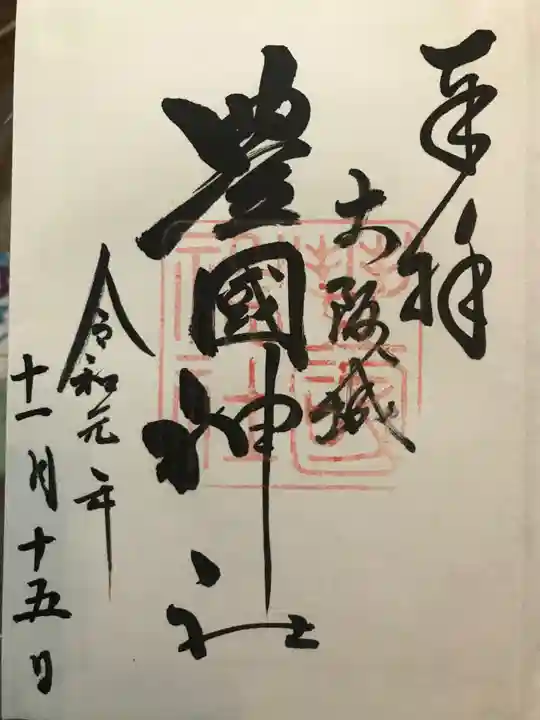 奉拝
大阪城
豊國神社
令和元年
十一月十五日
豊國神社